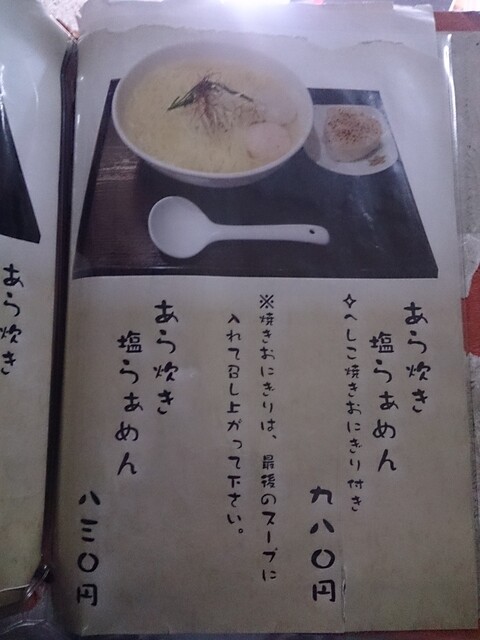 あら炊き
塩らぁめん
✧へしこ焼きおにぎり付き
九八〇円
※焼きおにぎりは、最後のスープに
入れて召し上がって下さい。
あら炊き
塩らぁめん
八三〇円
あら炊き